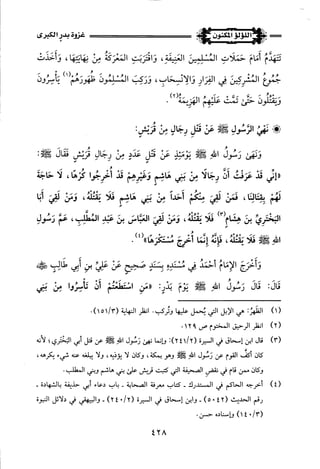 اللؤلؤ المكنون
غزوة بدر الكبرى
تتهدم أمام حملات المسلمين العنيفة، واقتربت المعركة من نهايتها، وأخذت
جموع المشركين في الفرار والانسحاب، وركب المسلمون ظهورهم(١) يأسرون
ويقتلون حتى تمت عليهم الهزيمة(٢).
* نهي الرسول ﷺ عن قتل رجال من قريش:
ونهى رسول الله ﷺ يومئذ عن قتل عدد من رجال قريش فقال ﷺ:
«إني قد عرفت أن رجالا من بني هاشم وغيرهم قد أخرجوا كرها، لا حاجة
لهم بقتالنا، فمن لقي منكم أحدا من بني هاشم فلا يقتله، ومن لقي أبا
البختري بن هشام(٣) فلا يقتله، ومن لقي العباس بن عبد المطلب، عم رسول
الله ﷺ فلا يقتله، فإنه إنما أخرج مستكرها»(٤).
وأخرج الإمام أحمد في مسنده بسند صحيح عن علي بن أبي طالب ﷺ
قال: قال رسول الله ﷺ يوم بدر: «من استطعتم أن تأسروا من بني
(١) الظهر: هي الإبل التي يحمل عليها وتركب. انظر النهاية (١٥١/٣).
(٢) انظر الرحيق المختوم ص ١٢٩.
(٣) قال ابن إسحاق في السيرة (٢٤١/٢): وإنما نهى رسول الله ﷺ عن قتل أبي البختري، لأنه
كان أكف القوم عن رسول الله ﷺ وهو بمكة، وكان لا يؤذيه، ولا يبلغه عنه شيء يكرهه،
وكان ممن قام في نقض الصحيفة التي كتبت قريش على بني هاشم وبني المطلب.
(٤) أخرجه الحاكم في المستدرك - كتاب معرفة الصحابة - باب دعاء أبي حذيفة بالشهادة -
رقم الحديث (٥٠٤٢) - وابن إسحاق في السيرة (٢٤٠/٢) - والبيهقي في دلائل النبوة
(١٤٠/٣) وإسناده حسن.
٤٢٨